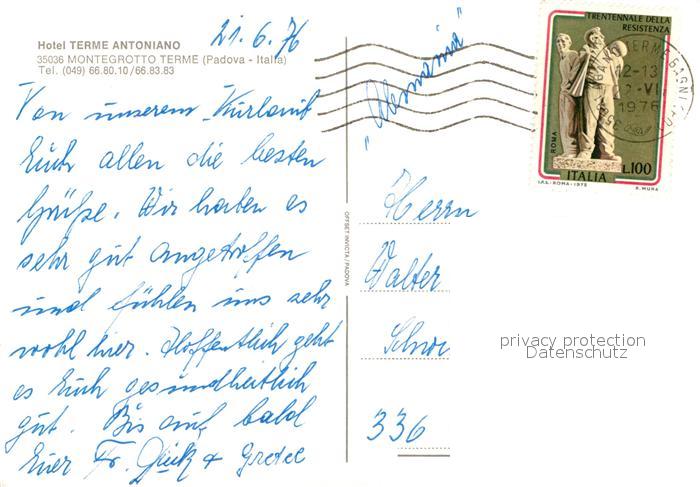 21.6.76
Hotel TERME ANTONIANO
35036 MONTEGROTTO TERME (Padova - Italia)
Tel. (049) 66.80.10/66.83.83
Von unserem Kurlaub
Euch allen die besten
Grüße. Wir haben es
sehr gut angetroffen
und fühlen uns sehr
wohl hier. Hoffentlich geht
es Euch gesundheitlich
gut. Bis auf bald
Euer Fr. & Gretel
OFFSET INVICTA / PADOVA
"Alemania"
TRENTENNALE DELLA
RESISTENZA
ROMA
L.100
ITALIA
I.P.S. - ROMA - 1975
E. MURA
12-13
1976
Herrn
Walter
privacy protection
Datenschutz
336